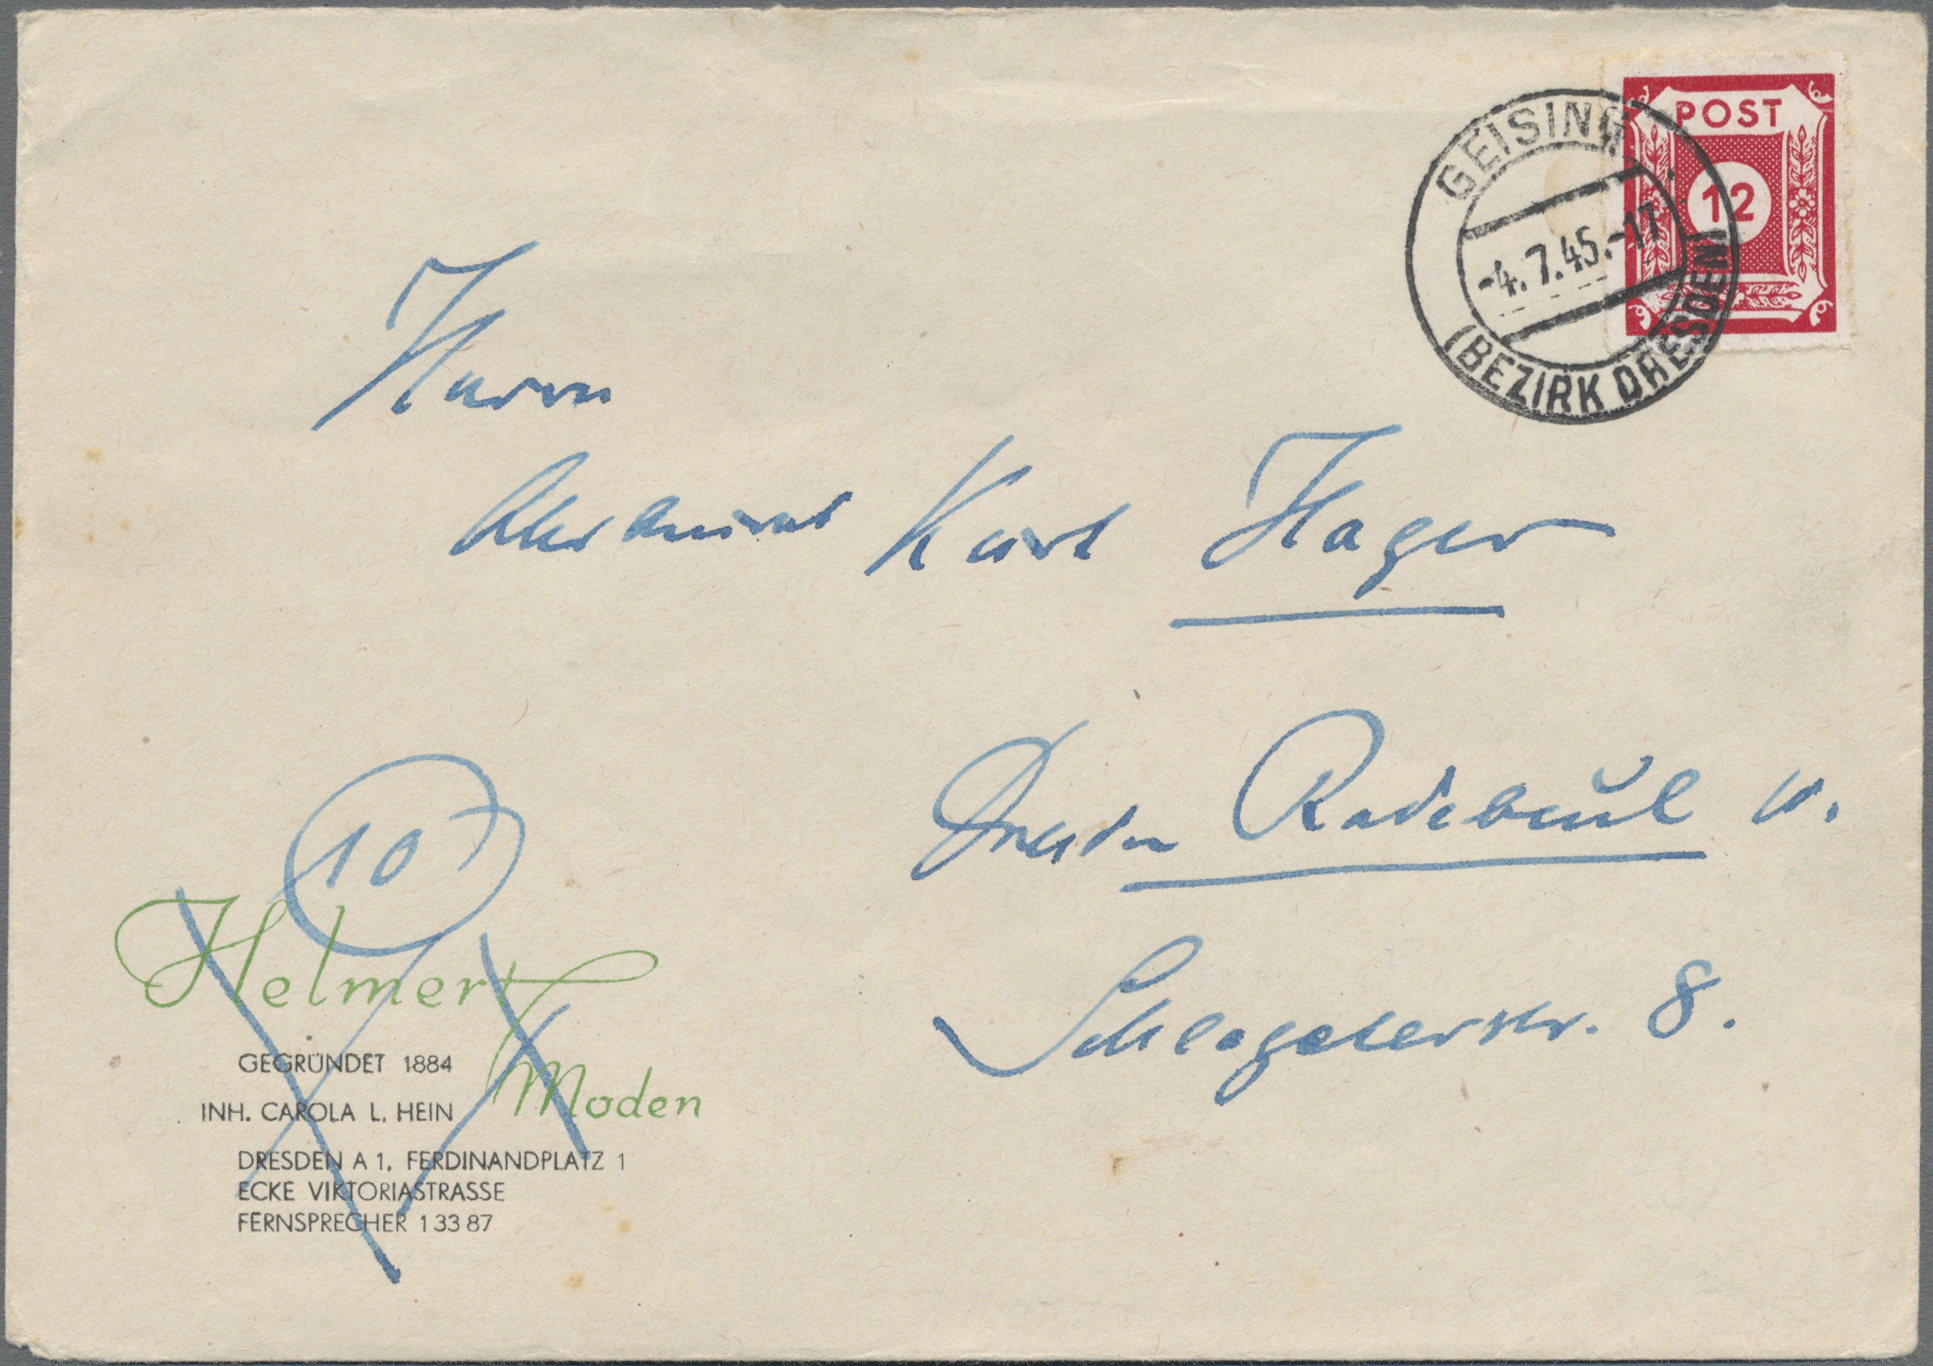 POST
12
GEISING
-4.7.45.-17
(BEZIRK DRESDEN)
Herrn
Kurt Hager
Dresden Radebeul
Schlageterstr. 8.
10
Helmert
Moden
GEGRÜNDET 1884
INH. CAROLA L. HEIN
DRESDEN A 1, FERDINANDPLATZ 1
ECKE VIKTORIASTRASSE
FERNSPRECHER 1 33 87